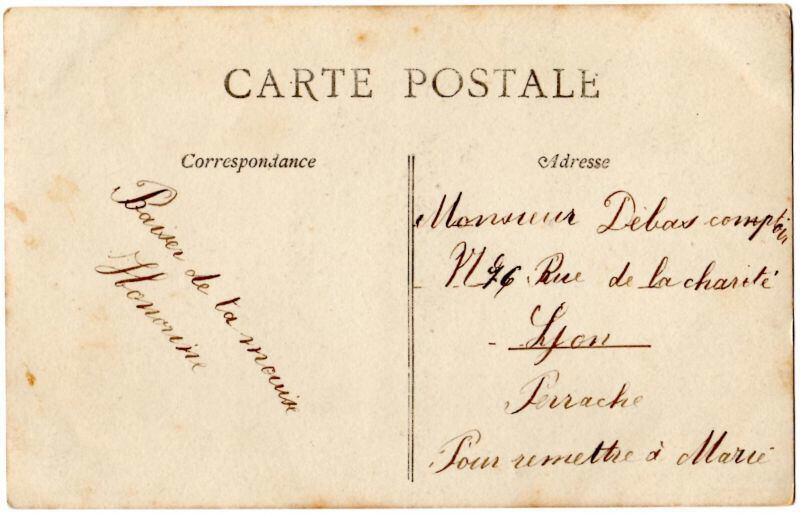 CARTE POSTALE
Correspondance
Adresse
Baiser de ta
Honorine
Monsieur Débas comptoir
76 Rue de la charité
Lyon
Perrache
Pour remettre à Marie